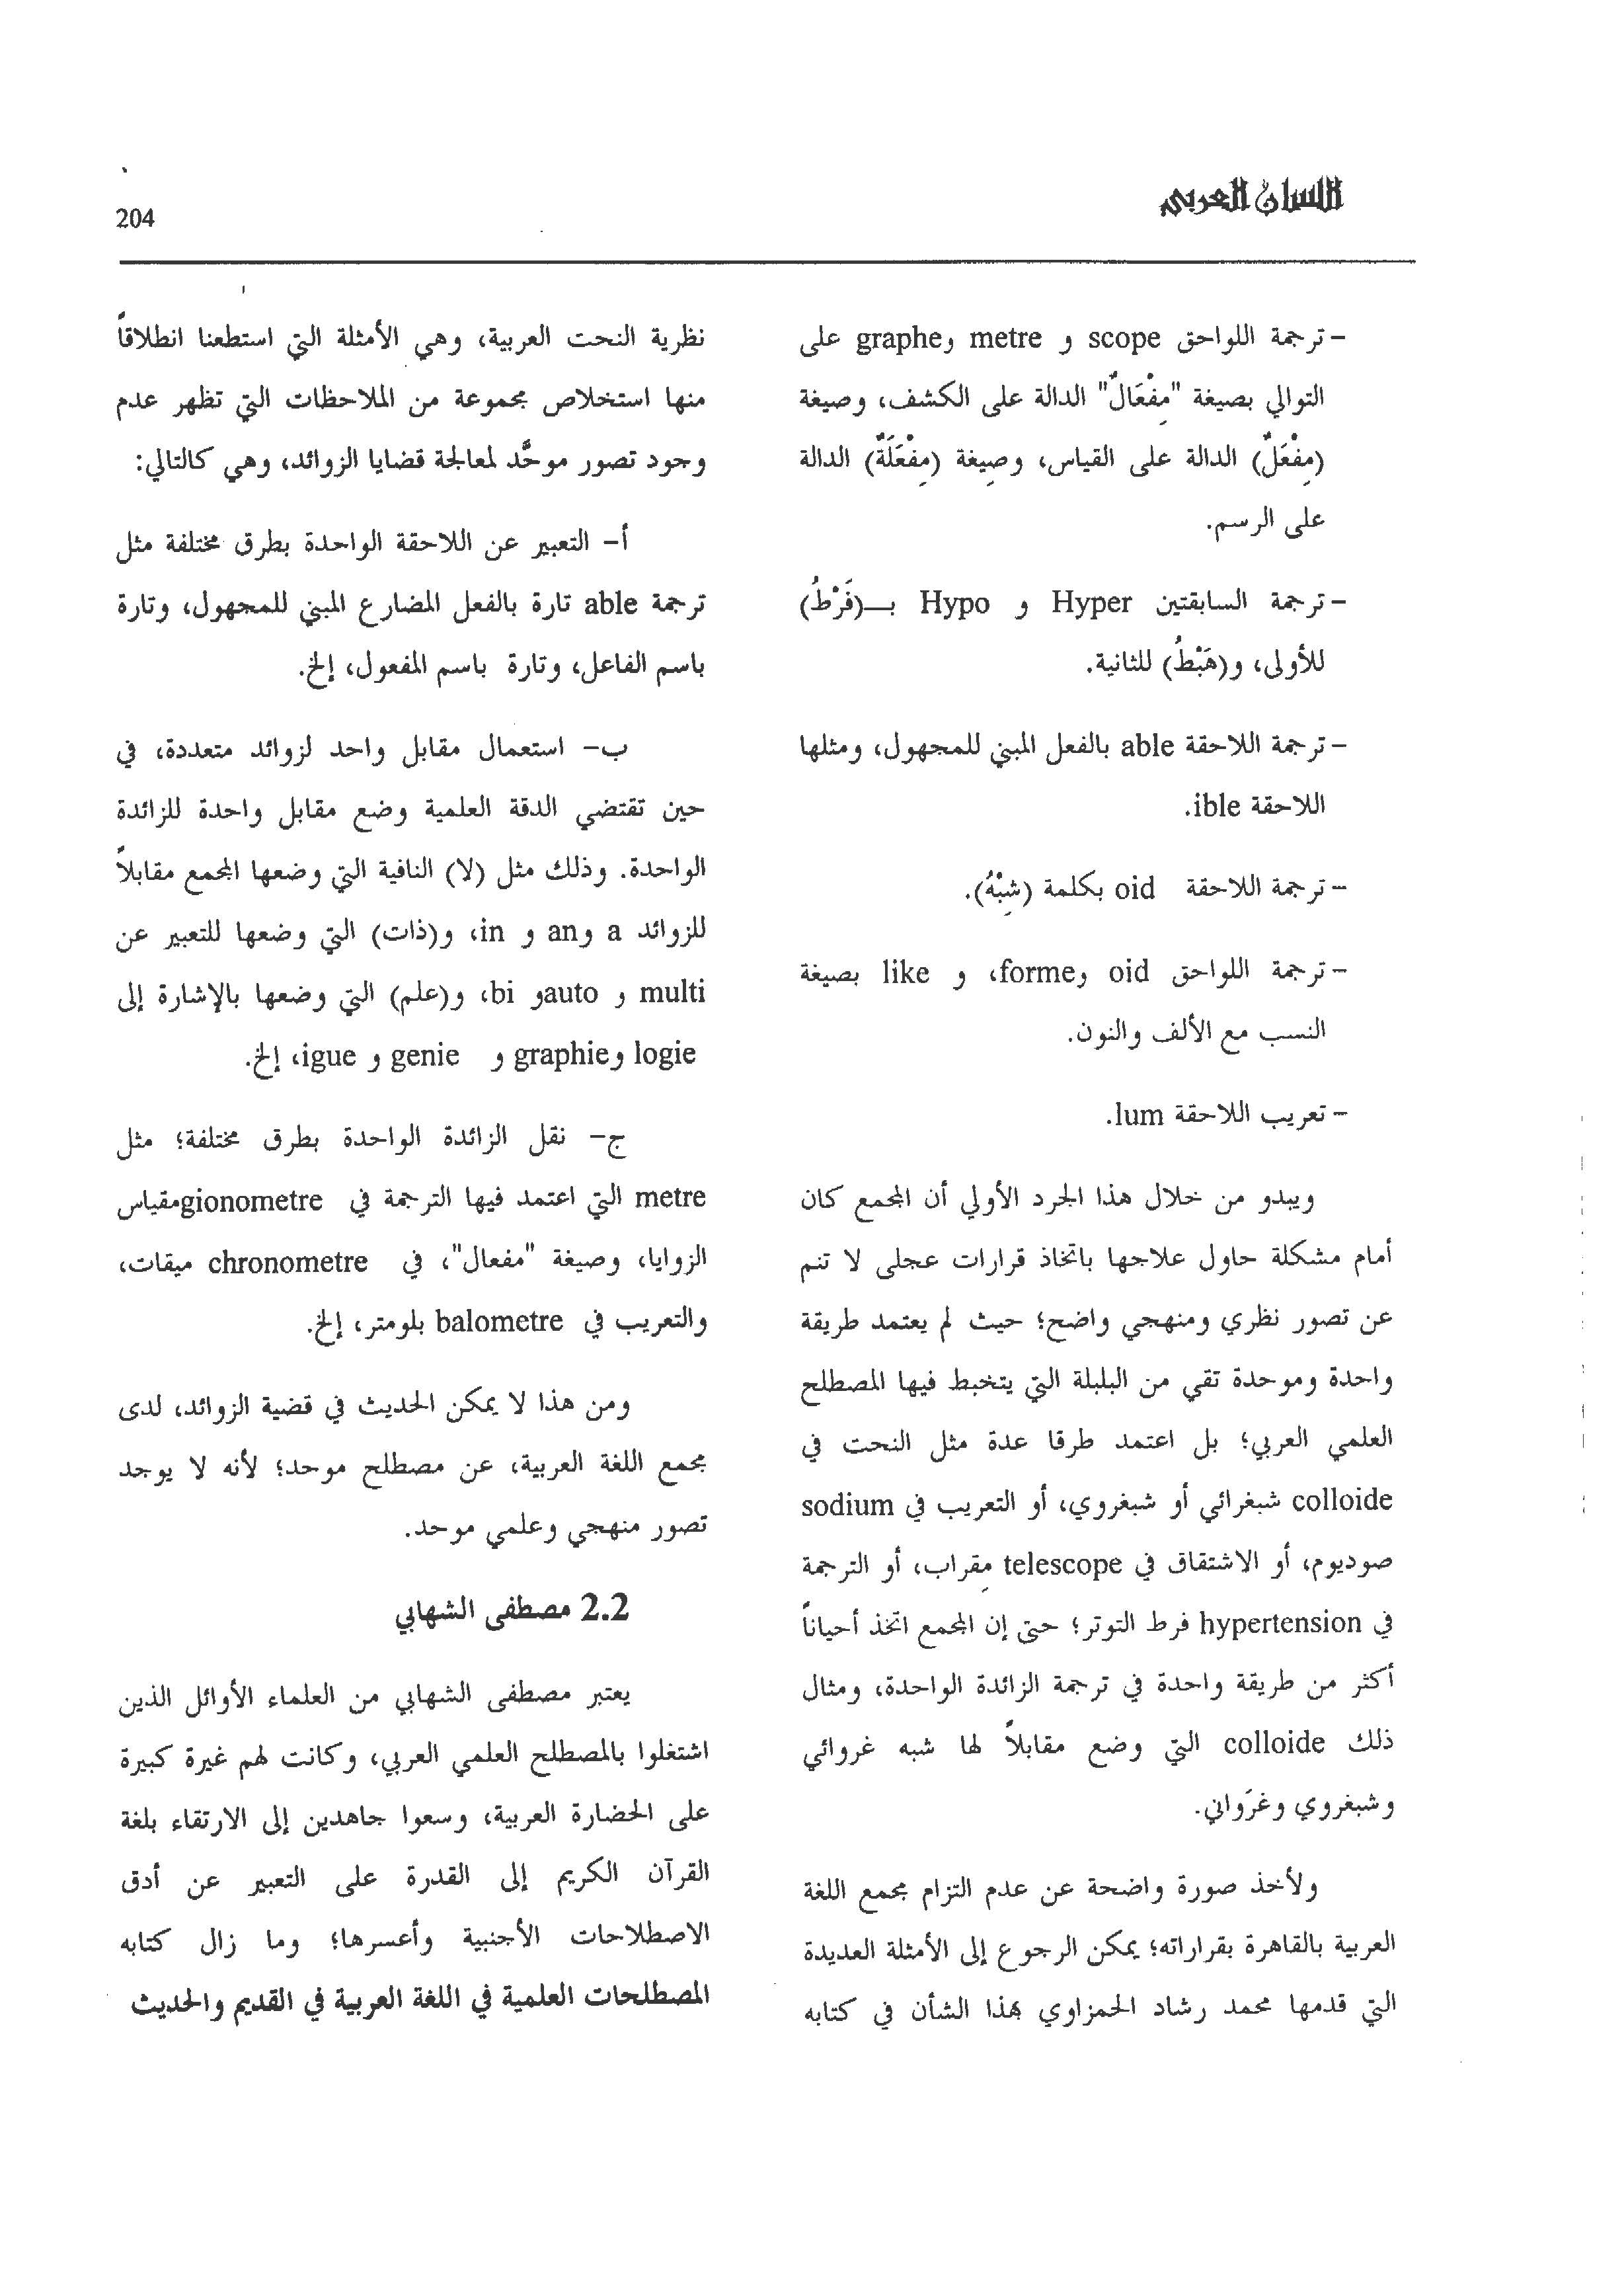 اللسان العربي
204
- ترجمة اللواحق scope و metre وgraphe على
التوالي بصيغة "مِفْعَالٌ" الدالة على الكشف، وصيغة
(مِفْعَلٌ) الدالة على القياس، وصيغة (مِفْعَلَةٌ) الدالة
على الرسم.
- ترجمة السابقتين Hyper و Hypo بــ(فَرْطُ)
للأولى، و(هَبْطُ) للثانية.
- ترجمة اللاحقة able بالفعل المبني للمجهول، ومثلها
اللاحقة ible.
- ترجمة اللاحقة oid بكلمة (شِبْهُ).
- ترجمة اللواحق oid وforme، و like بصيغة
النسب مع الألف والنون.
- تعريب اللاحقة lum.
ويبدو من خلال هذا الجرد الأولي أن المجمع كان
أمام مشكلة حاول علاجها باتخاذ قرارات عجلى لا تنم
عن تصور نظري ومنهجي واضح؛ حيث لم يعتمد طريقة
واحدة وموحدة تقي من البلبلة التي يتخبط فيها المصطلح
العلمي العربي؛ بل اعتمد طرقا عدة مثل النحت في
colloide شبغرائي أو شبغروي، أو التعريب في sodium
صوديوم، أو الاشتقاق في telescope مِقراب، أو الترجمة
في hypertension فرط التوتر؛ حتى إن المجمع اتخذ أحياناً
أكثر من طريقة واحدة في ترجمة الزائدة الواحدة، ومثال
ذلك colloide التي وضع مقابلاً لها شبه غروائي
وشبغروي وغرَواني.
ولأخذ صورة واضحة عن عدم التزام مجمع اللغة
العربية بالقاهرة بقراراته؛ يمكن الرجوع إلى الأمثلة العديدة
التي قدمها محمد رشاد الحمزاوي بهذا الشأن في كتابه
نظرية النحت العربية، وهي الأمثلة التي استطعنا انطلاقاً
منها استخلاص مجموعة من الملاحظات التي تظهر عدم
وجود تصور موحَّد لمعالجة قضايا الزوائد، وهي كالتالي:
أ- التعبير عن اللاحقة الواحدة بطرق مختلفة مثل
ترجمة able تارة بالفعل المضارع المبني للمجهول، وتارة
باسم الفاعل، وتارة باسم المفعول، إلخ.
ب- استعمال مقابل واحد لزوائد متعددة، في
حين تقتضي الدقة العلمية وضع مقابل واحدة للزائدة
الواحدة. وذلك مثل (لا) النافية التي وضعها المجمع مقابلاً
للزوائد a وan و in، و(ذات) التي وضعها للتعبير عن
multi و autoو bi، و(علم) التي وضعها بالإشارة إلى
logie وgraphie و genie و igue، إلخ.
ج- نقل الزائدة الواحدة بطرق مختلفة؛ مثل
metre التي اعتمد فيها الترجمة في gionometreمقياس
الزوايا، وصيغة "مفعال"، في chronometre ميقات،
والتعريب في balometre بلومتر، إلخ.
ومن هذا لا يمكن الحديث في قضية الزوائد، لدى
مجمع اللغة العربية، عن مصطلح موحد؛ لأنه لا يوجد
تصور منهجي وعلمي موحد.
2.2 مصطفى الشهابي
يعتبر مصطفى الشهابي من العلماء الأوائل الذين
اشتغلوا بالمصطلح العلمي العربي، وكانت لهم غيرة كبيرة
على الحضارة العربية، وسعوا جاهدين إلى الارتقاء بلغة
القرآن الكريم إلى القدرة على التعبير عن أدق
الاصطلاحات الأجنبية وأعسرها؛ وما زال كتابه
المصطلحات العلمية في اللغة العربية في القديم والحديث